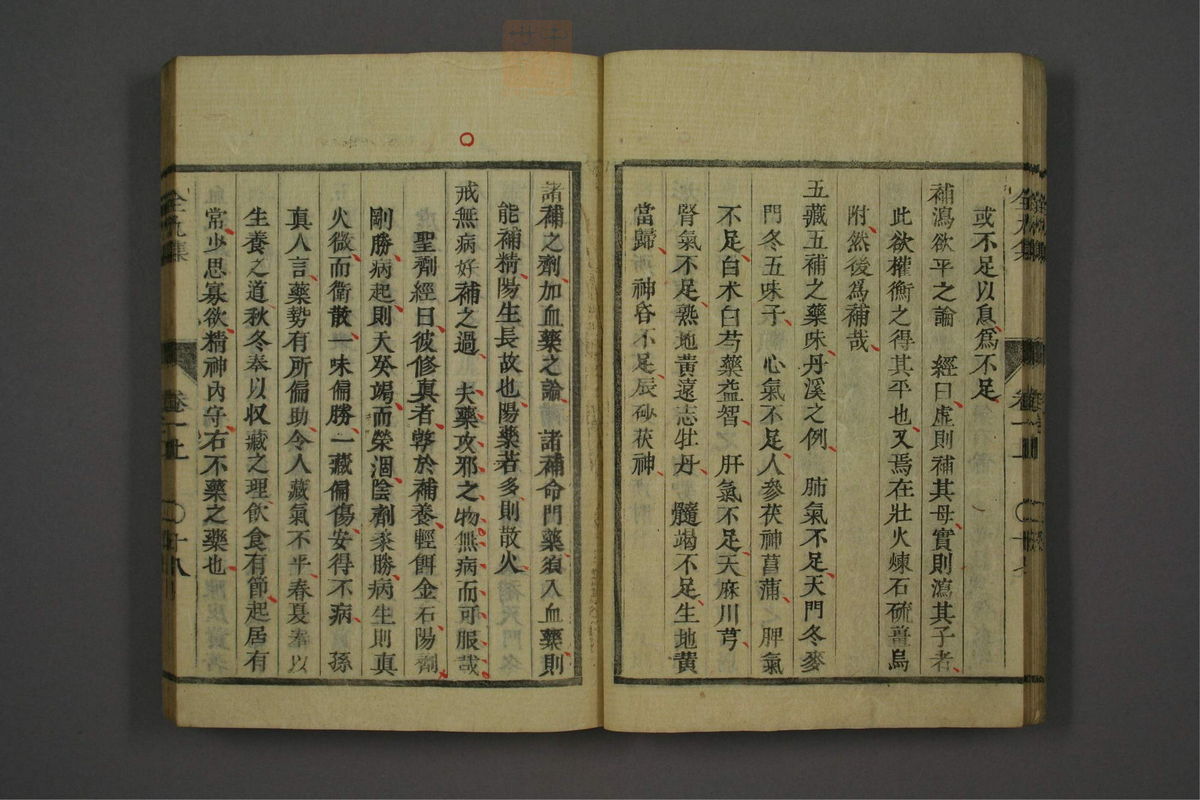 或不足以息爲不足
補瀉欲平之論 經曰虛則補其母實則瀉其子者
此欲權衡之得其平也又焉在壯火煉石硫薑烏
附然後爲補哉
五藏五補之藥味丹溪之例 肺氣不足天門冬麥
門冬五味子 心氣不足人參茯神菖蒲 脾氣
不足白术白芍藥益智 肝氣不足天麻川芎
腎氣不足熟地黃遠志牡丹 髓竭不足生地黃
當歸 神昏不足辰砂茯神
諸補之劑加血藥之論 諸補命門藥須入血藥則
能補精陽生長故也陽藥若多則散火
戒無病好補之過 夫藥攻邪之物無病而可服哉
聖劑經曰彼修真者弊於補養輕餌金石陽劑
剛勝病起則天癸竭而榮涸陰劑柔勝病生則真
火微而衛散一味偏勝一藏偏傷安得不病 孫
真人言藥勢有所偏助令人藏氣不平春夏奉以
生養之道秋冬奉以収藏之理飲食有節起居有
常少思寡欲精神內守右不藥之藥也
全九集
卷一上
〇十八